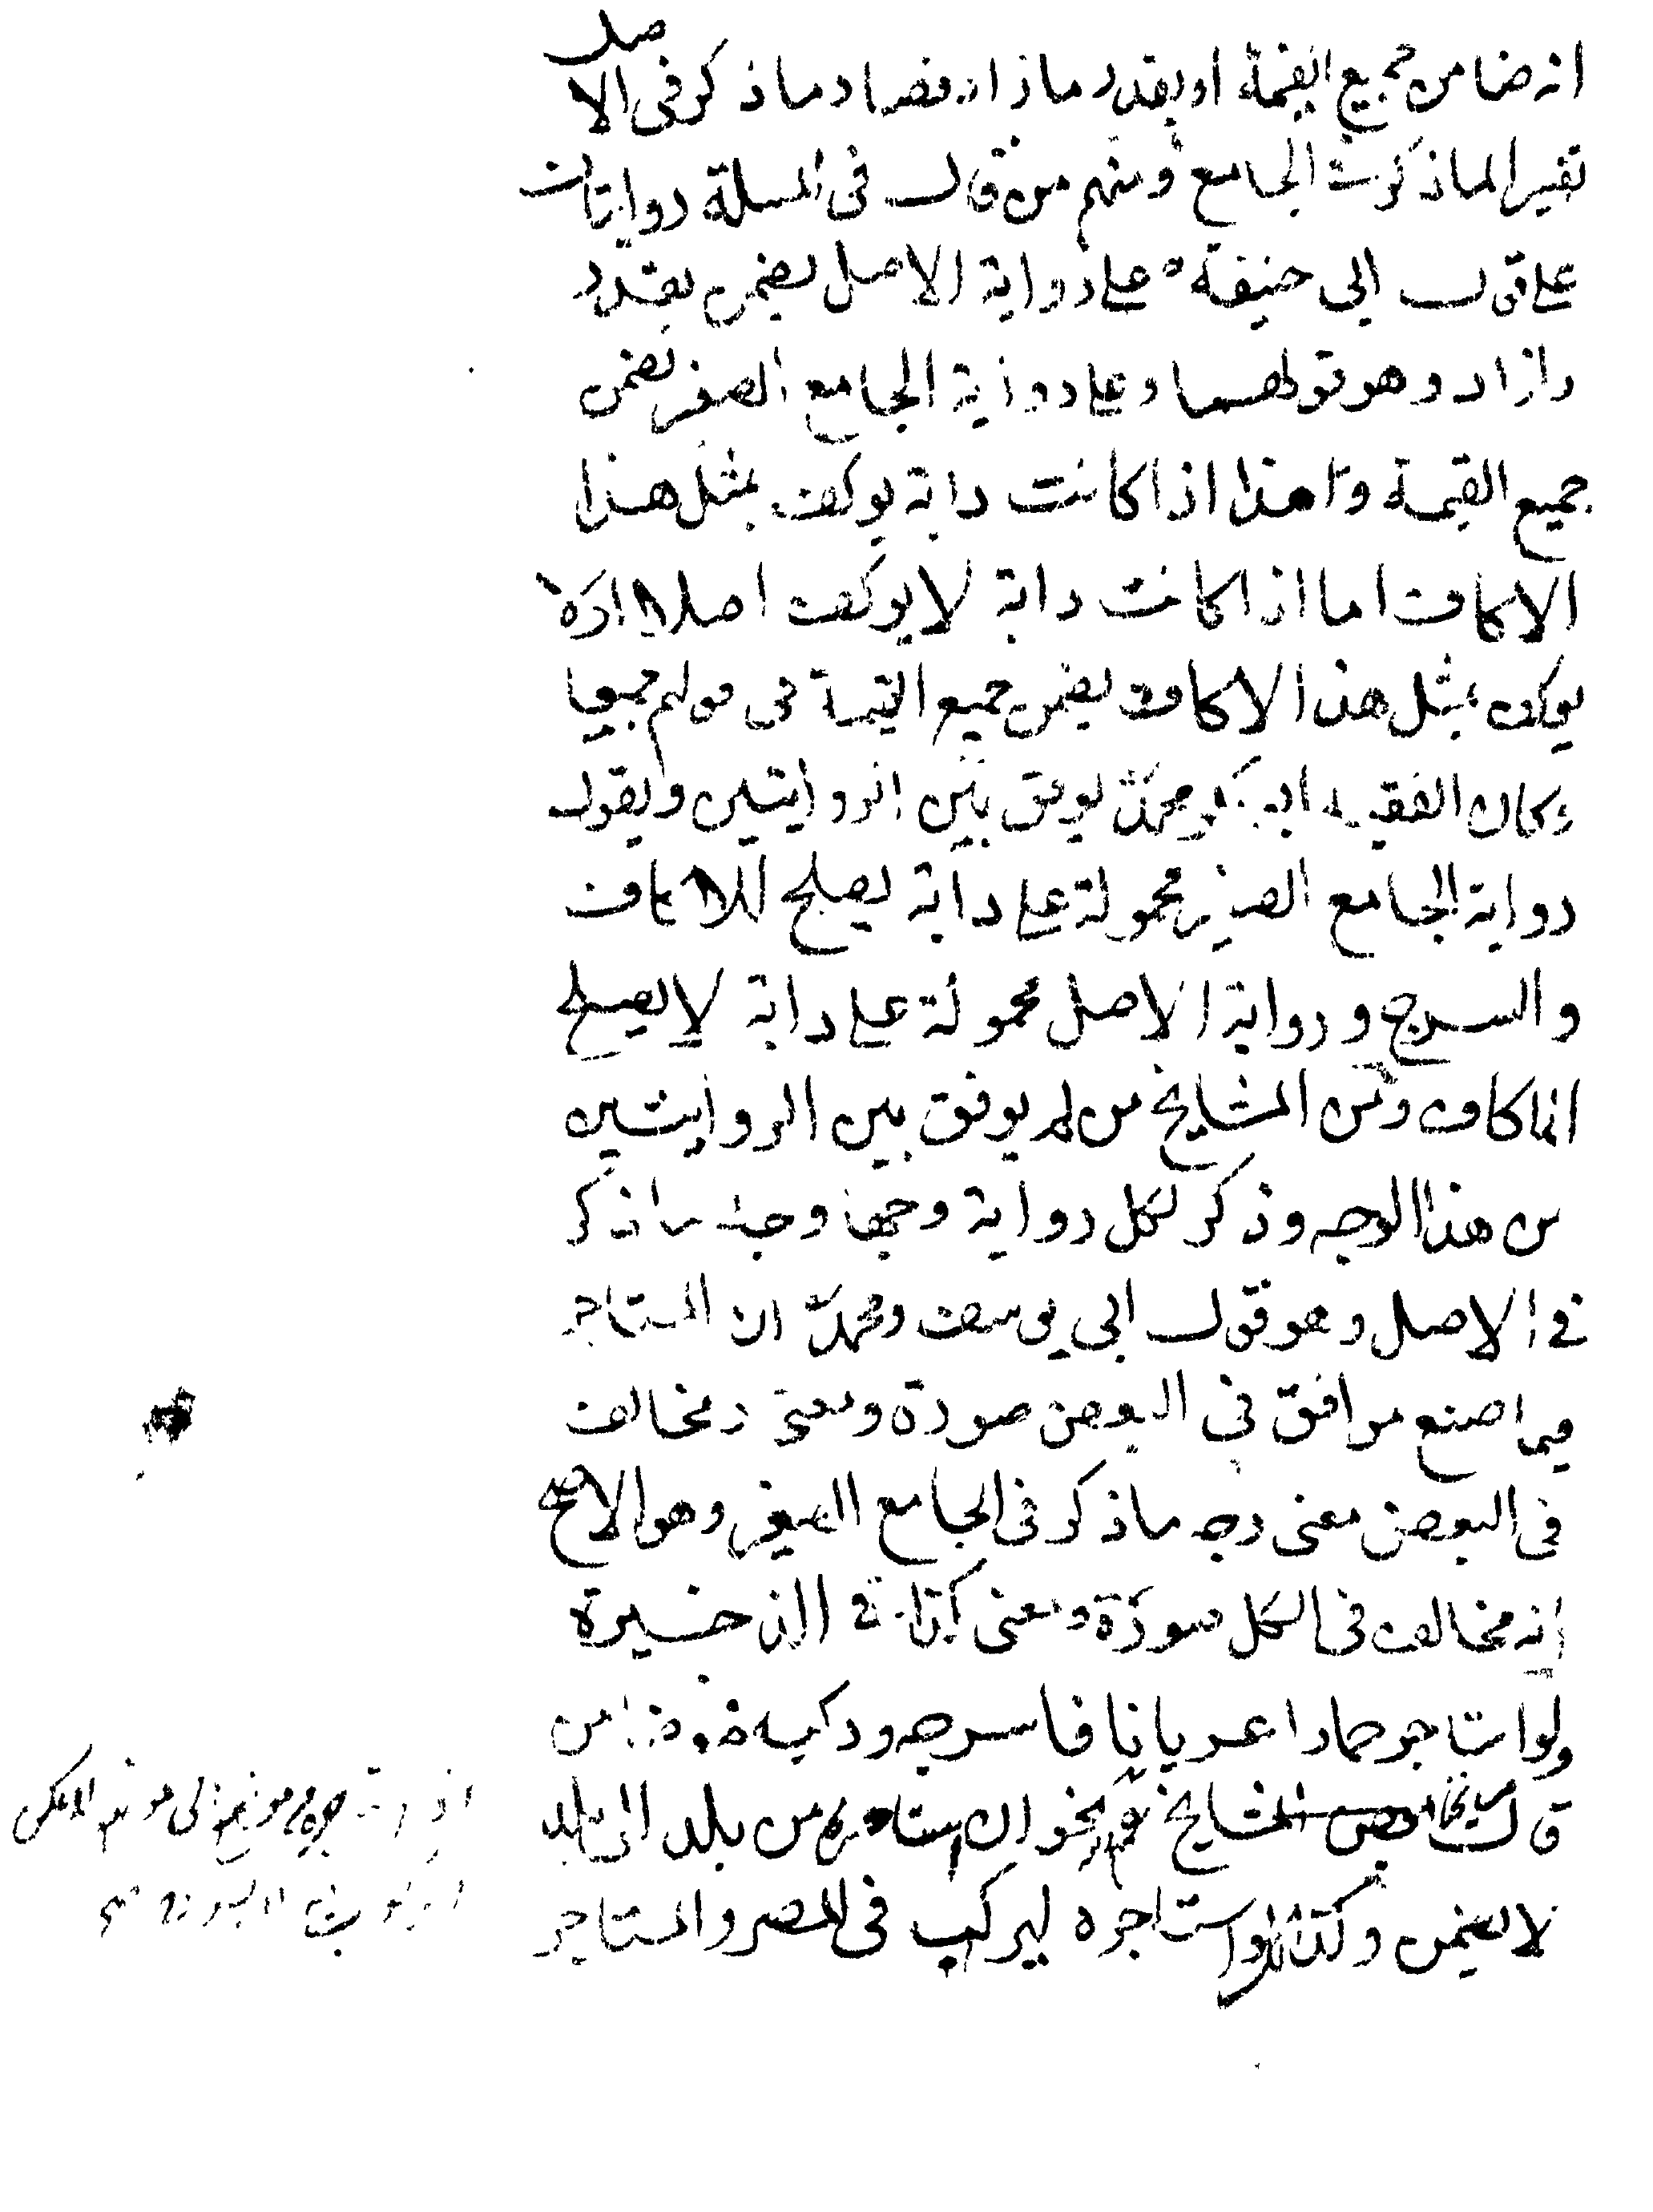 انه ضامن جميع القيمة او بقدر ما زاد فصار ما ذكر في الاصل
تفسيرا لما ذكر في الجامع ومنهم من قال في المسلة روايتان
على قول ابي حنيفة على رواية الاصل يضمن بقدر
ما زاد وهو قولهما وعلى رواية الجامع الصغير يضمن
جميع القيمة وهذا اذا كانت دابة يوكف بمثل هذا
الاكاف اما اذا كانت دابة لا يوكف اصلا او لا
يوكف بمثل هذا الاكاف يضمن جميع القيمة في قولهم جميعا
وكان الفقيه ابو بكر محمد يوفق بين الروايتين ويقول
رواية الجامع الصغير محمولة على دابة يصلح للاكاف
والسرج ورواية الاصل محمولة على دابة لا يصلح
الاكاف ومن المشايخ من لم يوفق بين الروايتين
من هذا الوجه وذكر لكل رواية وجها وجه ما ذكر
في الاصل وهو قول ابي يوسف ومحمد ان المستاجر
فيما صنع موافق في البعض صورة ومعنى ومخالف
في البعض معنى وجه ما ذكر في الجامع الصغير وهو الاصح
انه مخالف في الكل صورة ومعنى كذا في الذخيرة
ولو استاجر حمارا عريانا فاسرجه وركبه ضمن
قال مشايخنا ان استاجره من بلد الى بلد
لا يضمن وكذا لو استاجره ليركب في المصر والمستاجر
موضع الى موضع لا يمكن